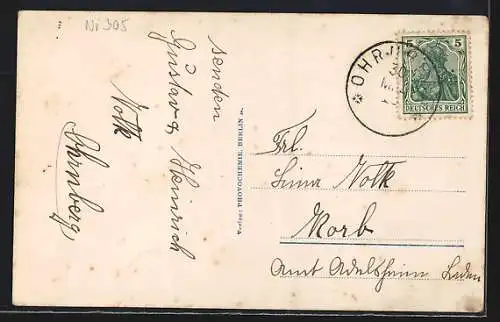 Nr 305
senden
Gustav & Heinrich
Volk
Ohrnberg
Verlag: PHOTOCHEMIE, BERLIN
OHR
30
5 5
DEUTSCHES REICH
Frl.
Lina Volk
Korb
Amt Adelsheim Baden